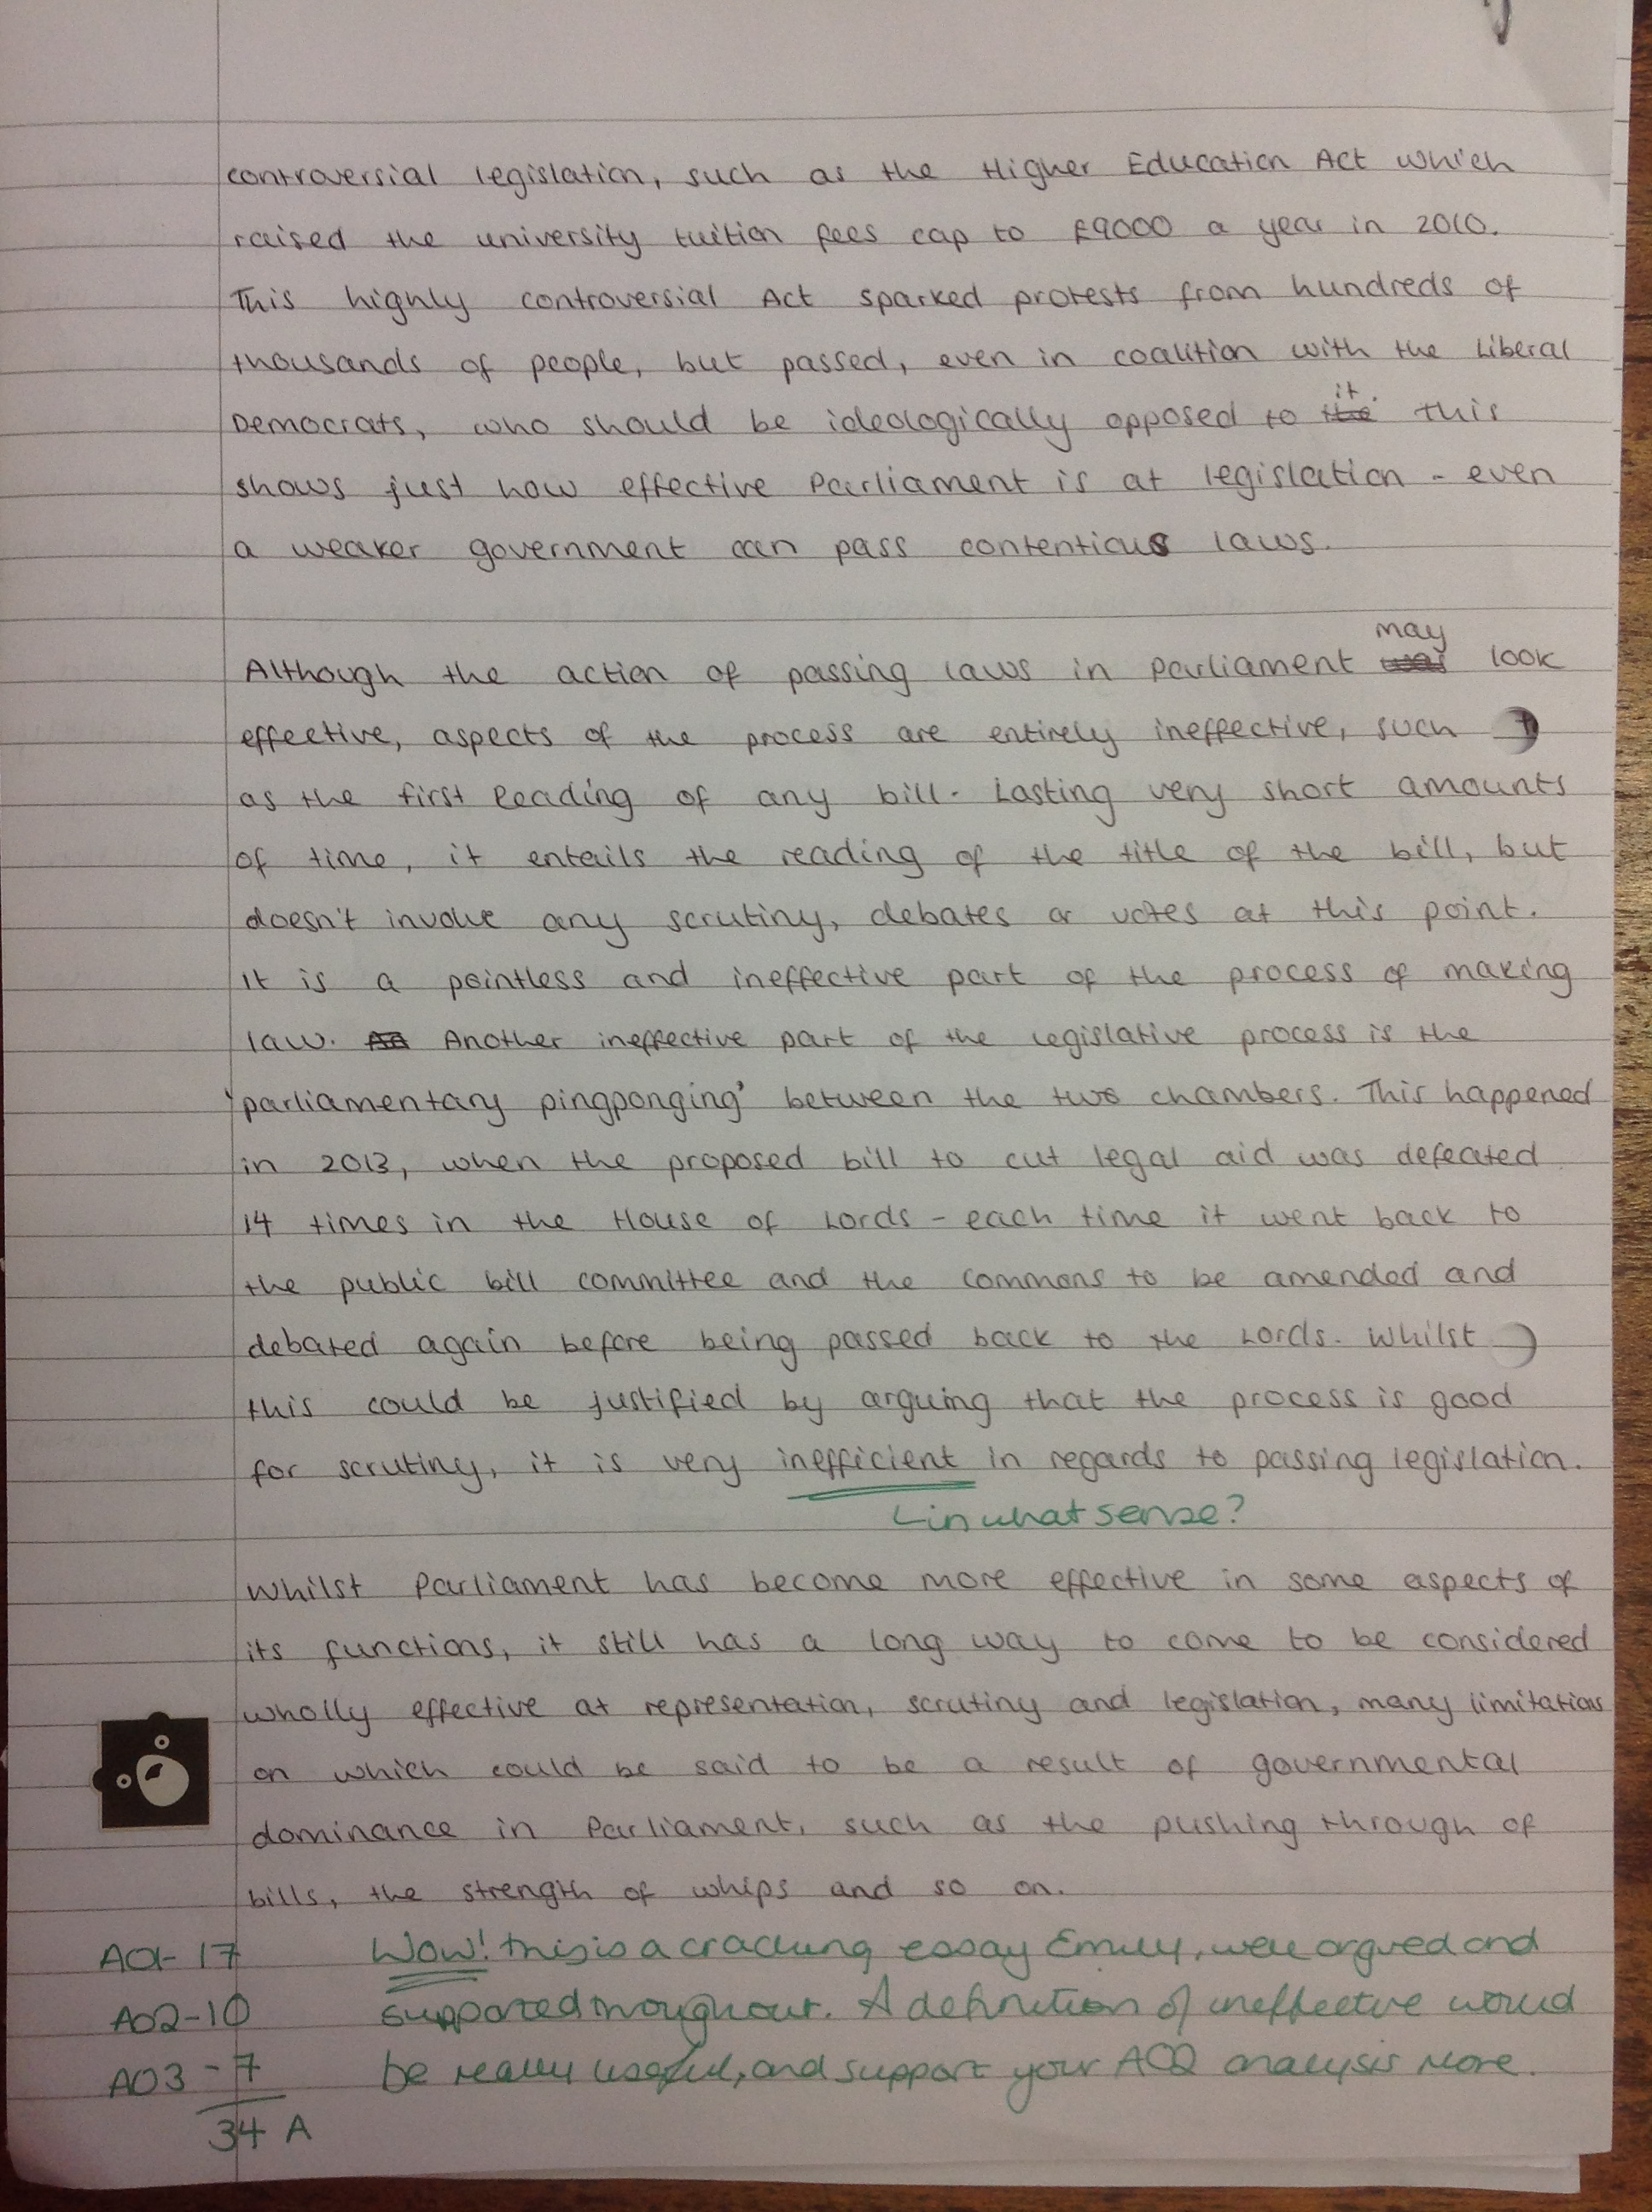 controversial legislation, such as the Higher Education Act which
raised the university tuition fees cap to £9000 a year in 2010.
This highly controversial Act sparked protests from hundreds of
thousands of people, but passed, even in coalition with the Liberal
Democrats, who should be ideologically opposed to the it. this
shows just how effective Parliament is at legislation - even
a weaker government can pass contentious laws.
Although the action of passing laws in Parliament was may look
effective, aspects of the process are entirely ineffective, such
as the first Reading of any bill. Lasting very short amounts
of time, it entails the reading of the title of the bill, but
doesn't involve any scrutiny, debates or votes at this point.
It is a pointless and ineffective part of the process of making
law. Another ineffective part of the legislative process is the
'parliamentary pingponging' between the two chambers. This happened
in 2013, when the proposed bill to cut legal aid was defeated
14 times in the House of Lords - each time it went back to
the public bill committee and the Commons to be amended and
debated again before being passed back to the Lords. Whilst
this could be justified by arguing that the process is good
for scrutiny, it is very inefficient in regards to passing legislation.
in what sense?
Whilst Parliament has become more effective in some aspects of
its functions, it still has a long way to come to be considered
wholly effective at representation, scrutiny and legislation, many limitations
on which could be said to be a result of governmental
dominance in Parliament, such as the pushing through of
bills, the strength of whips and so on.
AO1- 17 Wow! this is a cracking essay Emily, well argued and
AO2-10 supported throughout. A definition of ineffective would
AO3 - 7 be really useful, and support your AO2 analysis more.
34 A